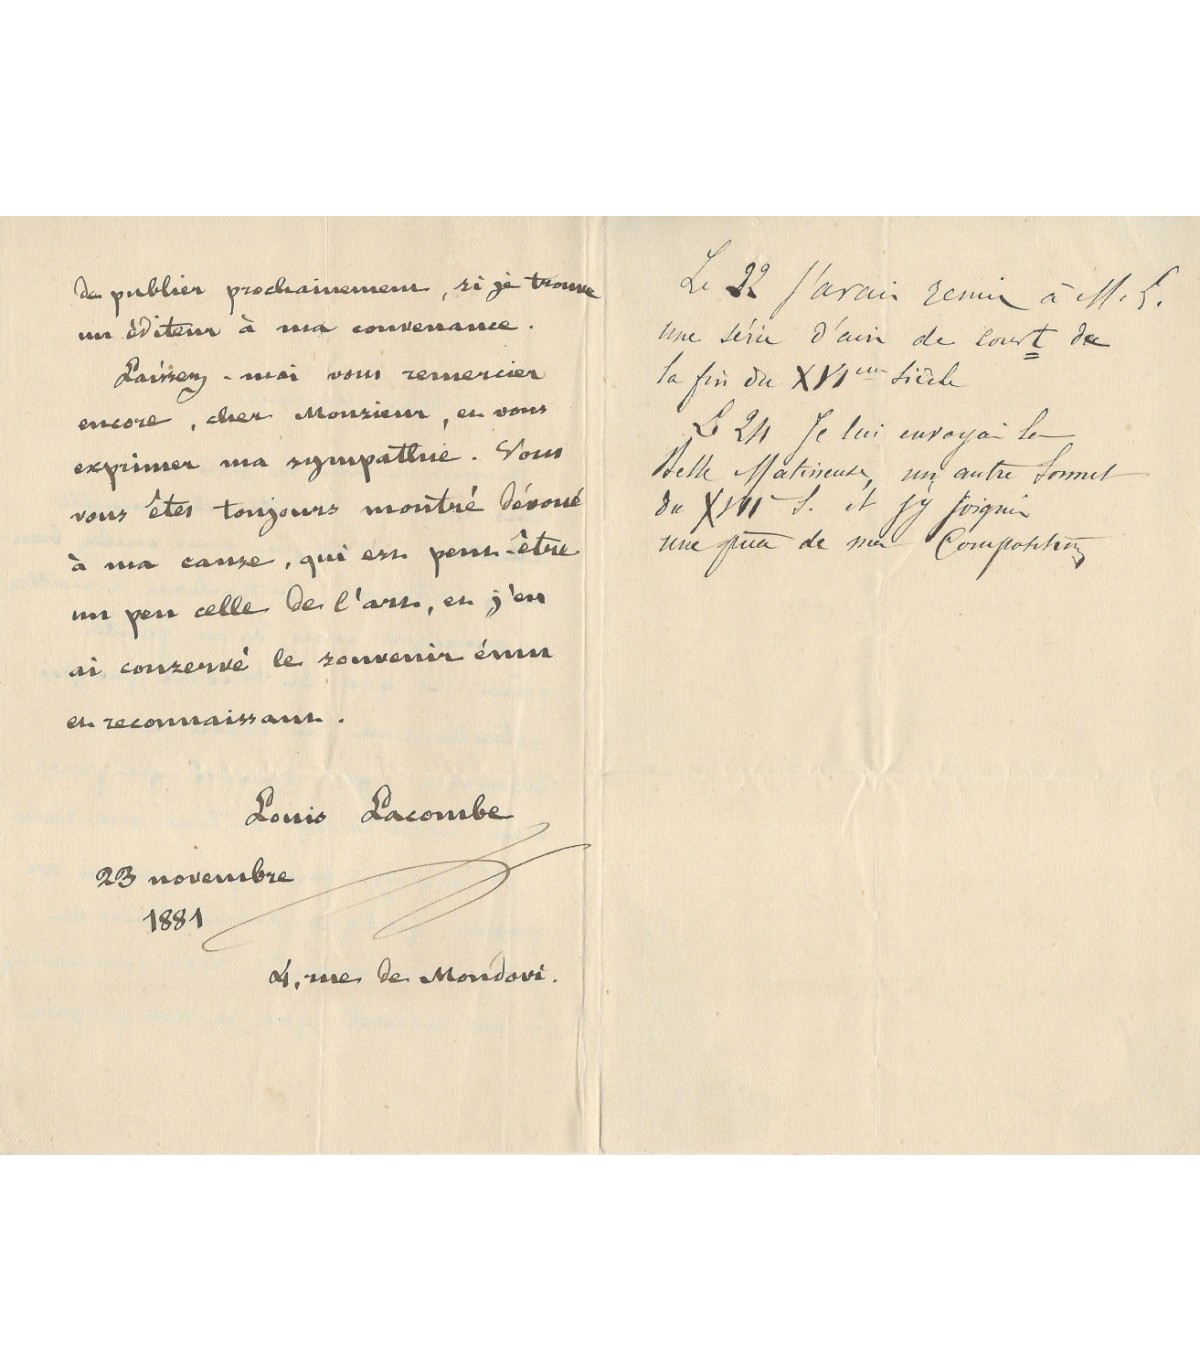 de publier prochainement, si je trouve
un éditeur à ma convenance.
Laissez-moi vous remercier
encore, cher Monsieur, et vous
exprimer ma sympathie. Vous
vous êtes toujours montré dévoué
à ma cause, qui est peut-être
un peu celle de l'art, et j'en
ai conservé le souvenir ému
et reconnaissant.
Louis Lacombe
23 novembre
1881
4, rue de Mondovi.
Le 22 J'avais remis à M. L.
une série d'airs de Court de
la fin du XVIeme Siècle
Le 24 Je lui envoyai la
Belle Matineuse, un autre Sonnet
du XVII S. et j'y joignis
une de mes Compositions